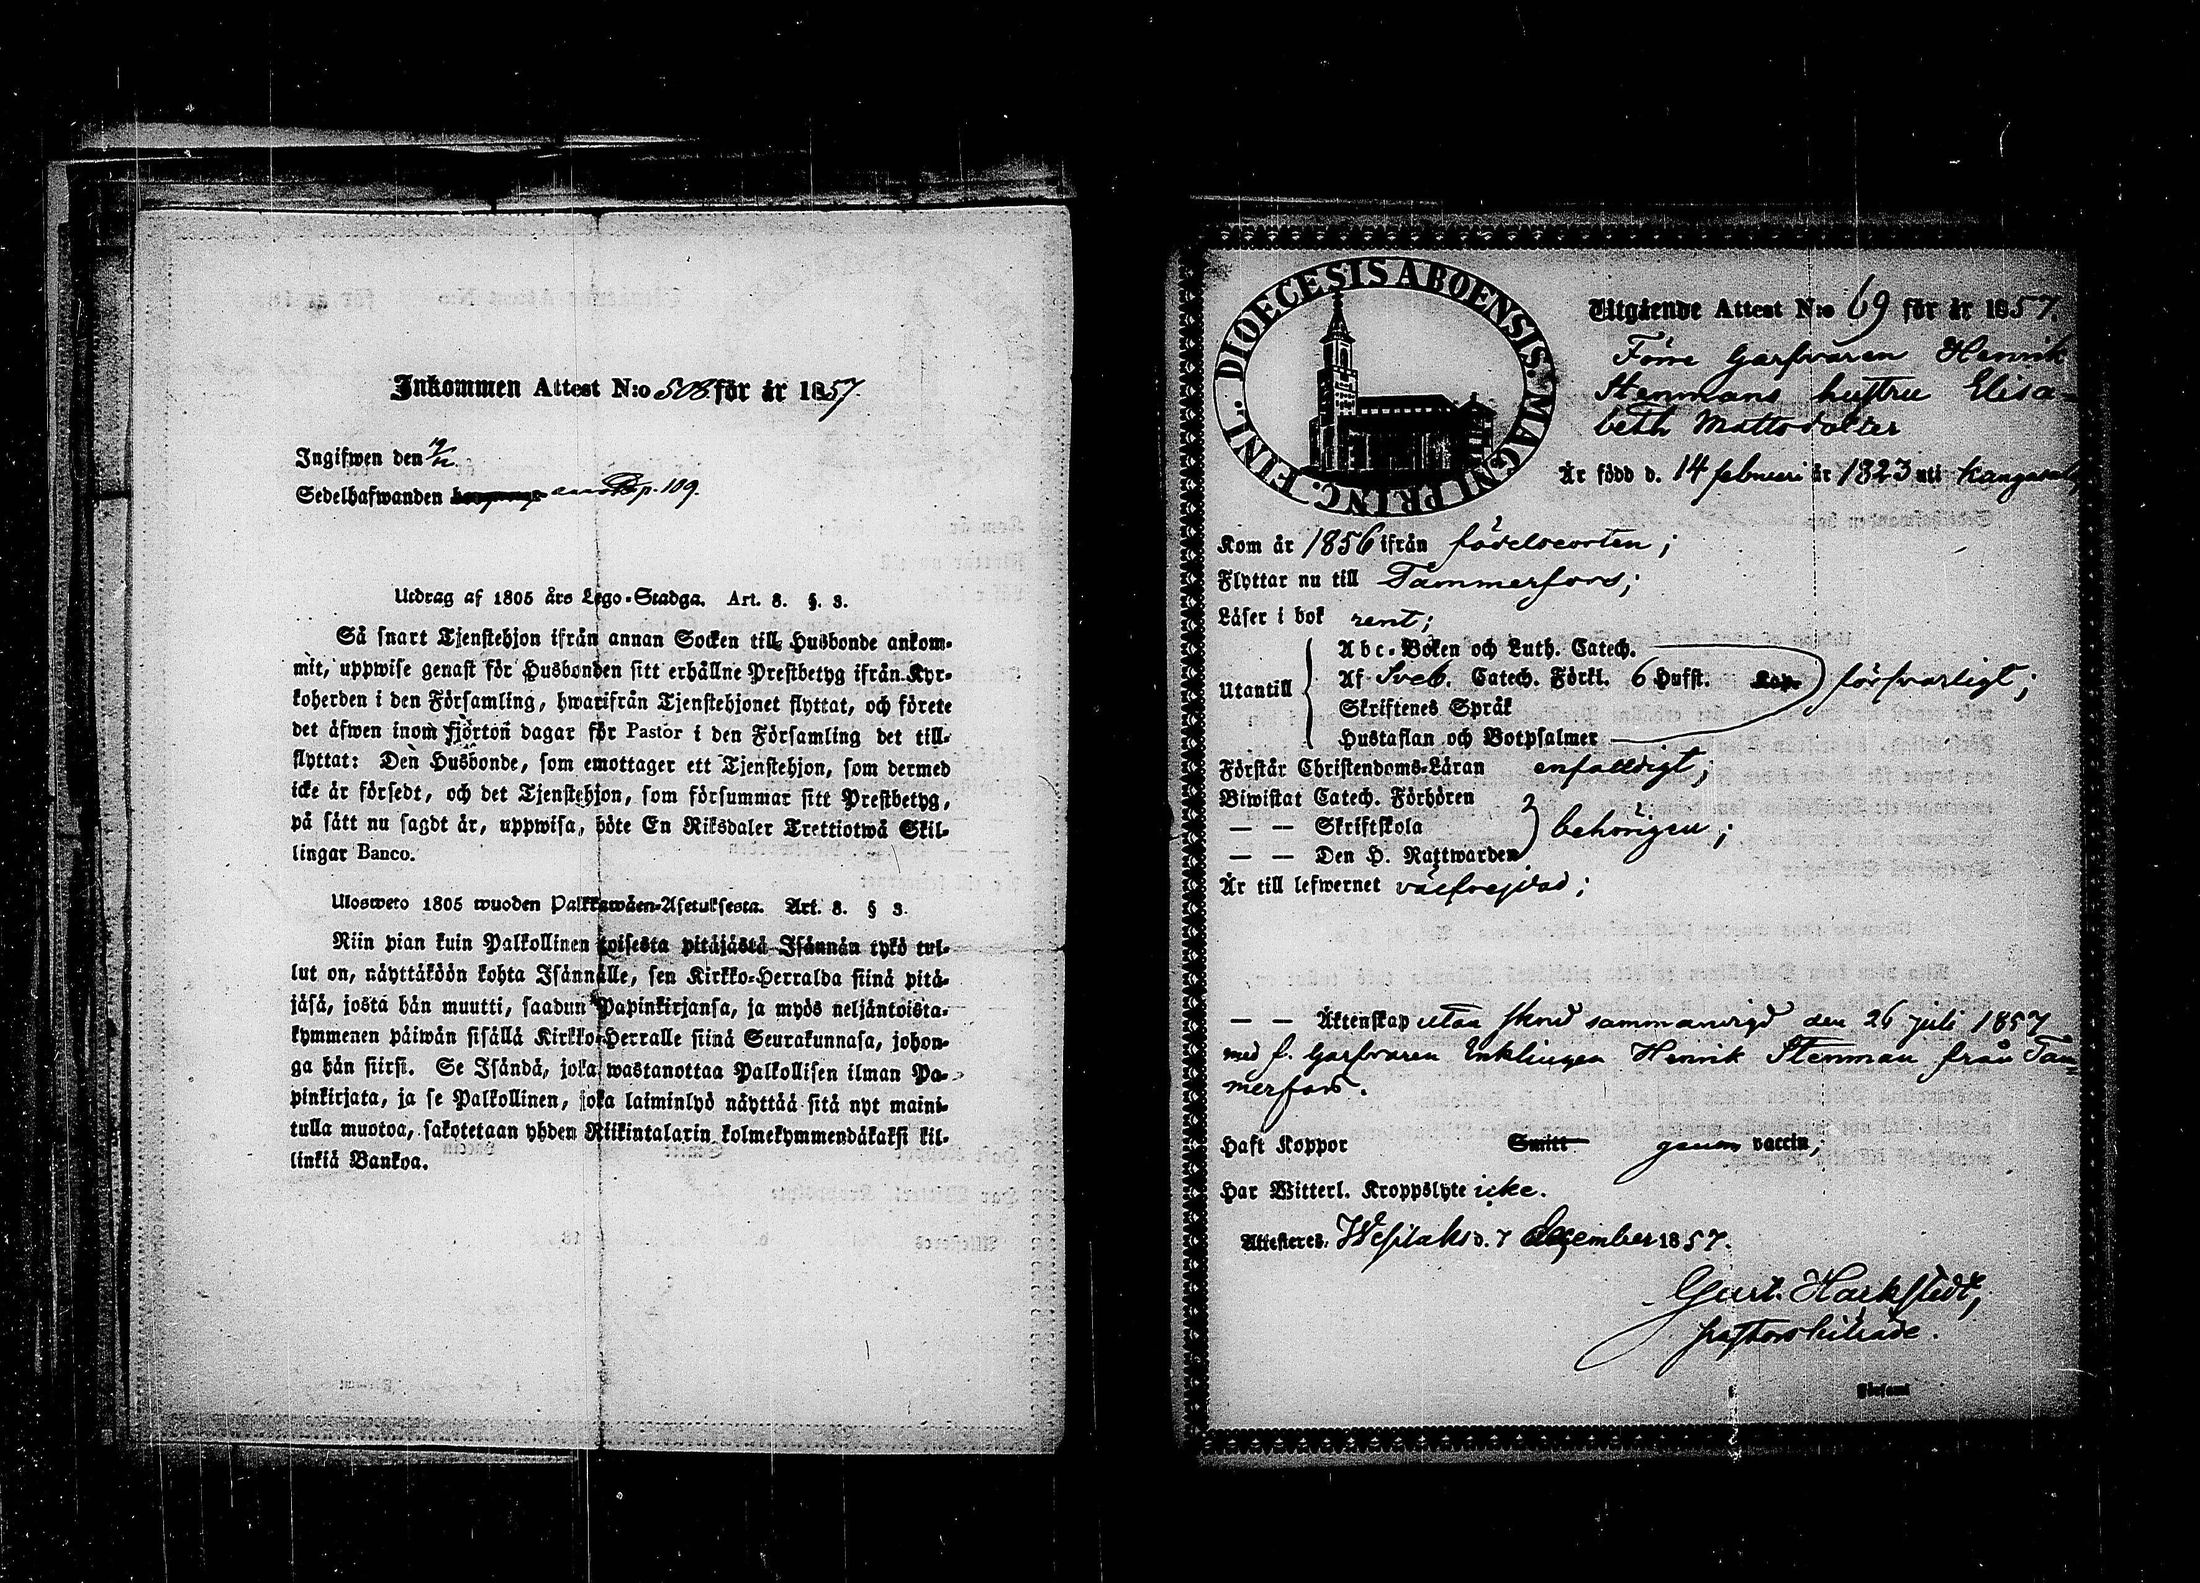 Inkommen Attest N:o 508 för år 1857.
Ingifwen den
Sedelhafwanden p. 109.
Utdrag af 1805 års Lego-Stadga. Art. 8. §. 3.
Så snart Tjenstehjon ifrån annan Socken till Husbonde ankom-
mit, uppwise genast för Husbonden sitt erhållne Prestbetyg ifrån Kyr-
koherden i den Församling, hwarifrån Tjenstehjonet flyttat, och förete
det äfwen inom fjorton dagar för Pastor i den Församling det till-
flyttat: Den Husbonde, som emottager ett Tjenstehjon, som dermed
icke är försedt, och det Tjenstehjon, som försummar sitt Prestbetyg,
på sätt nu sagdt är, uppwisa, böte En Riksdaler Trettiotwå Skil-
lingar Banco.
Ulosweto 1805 wuoden Palkkawäen-Asetuksesta. Art. 8. § 3.
Niin pian kuin Palkollinen toisesta pitäjästä Isännän tykö tul-
lut on, näyttäköön kohta Isännälle, sen Kirkko-Herralda siinä pitä-
jäsä, josta hän muutti, saadun Papinkirjansa, ja myös neljäntoista-
kymmenen päiwän sisällä Kirkko-Herralle siinä Seurakunnasa, johon-
ga hän siirsi. Se Isändä, joka wastanottaa Palkollisen ilman Pa-
pinkirjata, ja se Palkollinen, joka laiminlyö näyttää sitä nyt maini-
tulla muotoa, sakotetaan yhden Riikintalarin kolmekymmendäkaksi kil-
linkiä Bankoa.
DIOECESIS ABOENSIS. MAGNI PRINC. FINL.
Utgående Attest N:o 69 för år 1857.
Förre Garfvaren Henrik
Stenmans hustru Elisa-
beth Mattsdotter
Är född d. 14 februari år 1823 uti Kangasala,
Kom år 1856 ifrån födelseorten;
Flyttar nu till Tammerfors;
Läser i bok rent;
Utantill
Abc-Boken och Luth. Catech.
Af Sveb. Catech. Förkl. 6 Hufst. Kap. försvarligt;
Skriftenes Språk
Hustaflan och Botpsalmer
Förstår Christendoms-Läran enfaldigt;
Biwistat Catech. Förhören
— — Skriftskola behörigen;
— — Den H. Nattwarden
Är till lefwernet välfrejdad;
— — Äktenskap utan skrud sammanvigd den 26 juli 1857
med f. Garfvaren Enklingen Henrik Stenman från Tam-
merfors.
Haft Koppor Smitt genom vaccin;
Har Witterl. Kroppslyte icke.
Attesteres. Wesilaks d. 7 december 1857.
Gust. Harkstedt,